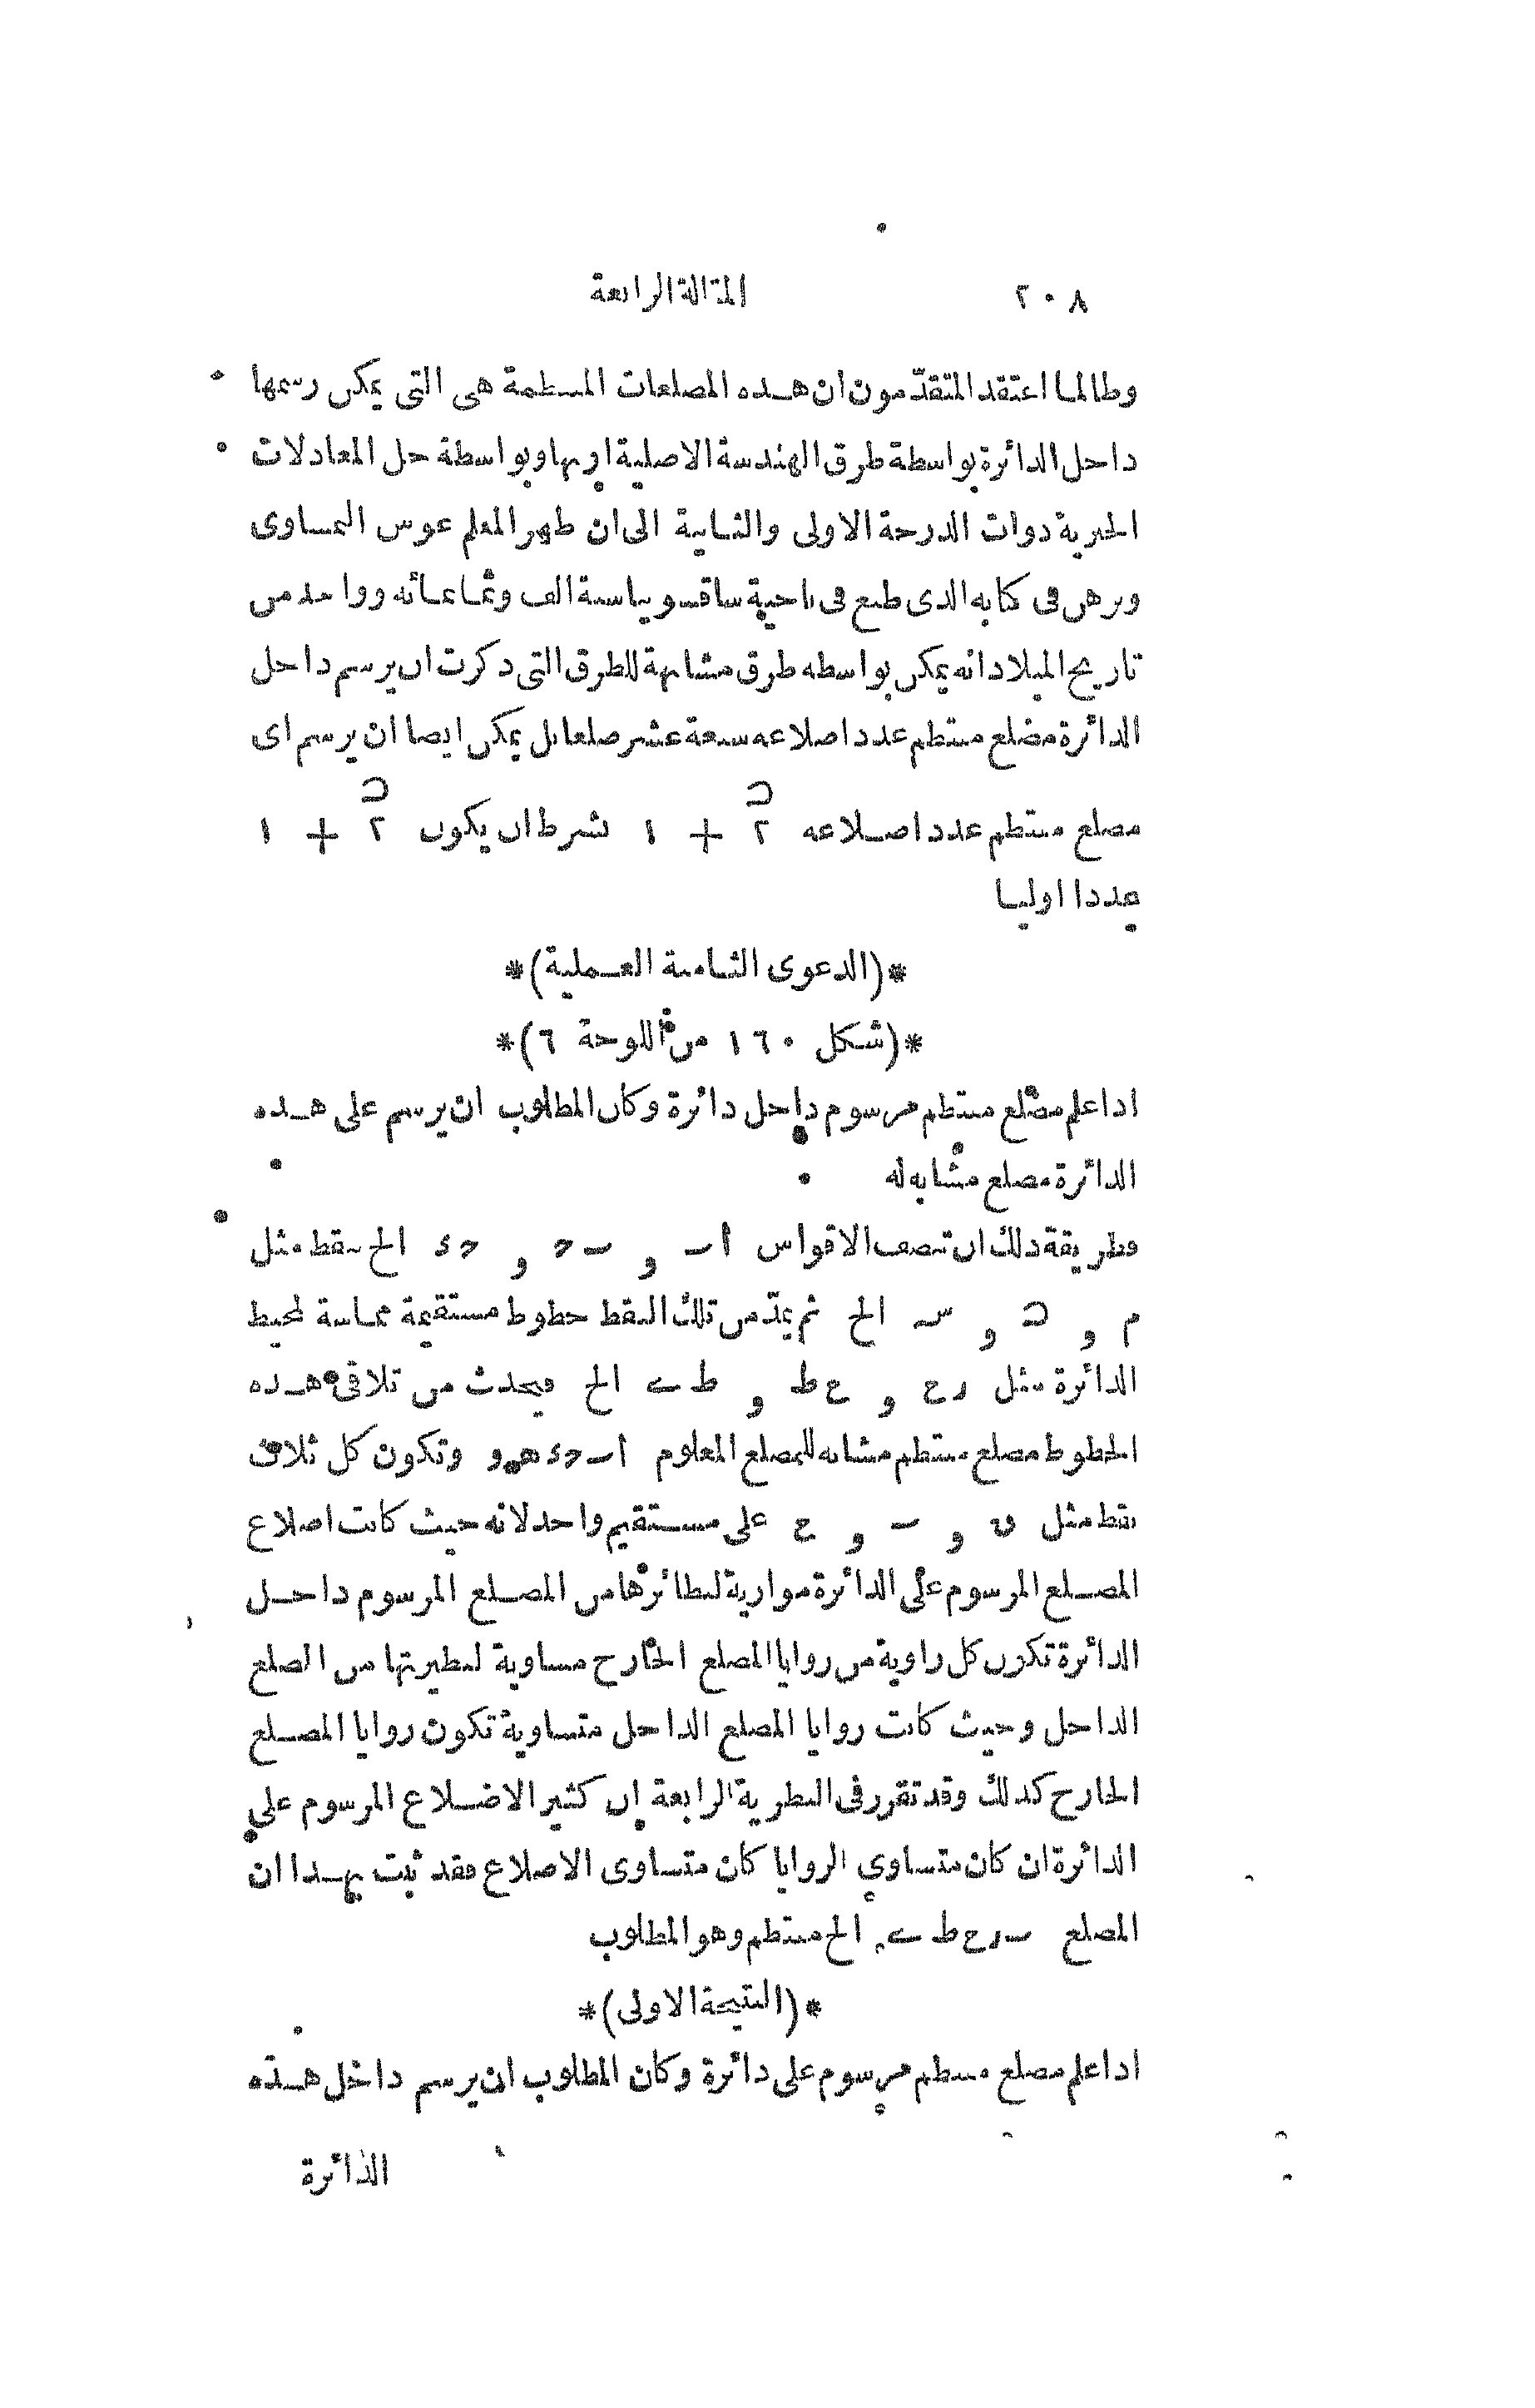 ٢٠٨ المقالة الرابعة
وطالما اعتقد المتقدّمون ان هذه المضلعات المنتظمة هى التى يمكن رسمها
داحل الدائرة بواسطة طرق الهندسة الاصلية او بها وبواسطة حل المعادلات
الجبرية ذوات الدرجة الاولى والثانية الى ان ظهر المعلم غوس النمساوى
وبرهن فى كتابه الذى طبع فى ناحية ساقسونيا سنة الف وثمانمائه وواحد من
تاريخ الميلاد انه يمكن بواسطه طرق مشابهة للطرق التى ذكرت ان يرسم داخل
الدائرة مضلع منتظم عدد اضلاعه سبعة عشر ضلعا بل يمكن ايضا ان يرسم اى
مضلع منتظم عدد اضلاعه ٢^ں + ١ بشرط ان يكون ٢^ں + ١
عددا اوليا
*(الدعوى الثامنة العملية)*
*(شكل ١٦٠ من اللوحة ٦)*
اذا علم مضلع منتظم مرسوم داخل دائرة وكان المطلوب ان يرسم على هذه
الدائرة مضلع مشابه له
فطريقة ذلك ان تنصف الاقواس اب و بح و حد الخ بنقط مثل
م و ں و س الخ ثم يمدّ من تلك النقط خطوط مستقيمة مماسة لمحيط
الدائرة مثل رح و حط و طى الخ فيحدث من تلاقى هذه
الخطوط مضلع منتظم مشابه للمضلع المعلوم ابحدهو وتكون كل ثلاث
نقط مثل و ب و ح على مستقيم واحد لانه حيث كانت اضلاع
المضلع المرسوم على الدائرة موازية لنظائرها من المضلع المرسوم داخل
الدائرة تكون كل زاوية من زوايا المضلع الخارج مساوية لنظيرتها من الضلع
الداخل وحيث كانت زوايا المضلع الداخل متساوية تكون زوايا المضلع
الخارج كذلك وقد تقرر فى النظرية الرابعة ان كثير الاضلاع المرسوم على
الدائرة ان كان متساوى الزوايا كان متساوى الاضلاع فقد ثبت بهذا ان
المضلع رحطى الخ منتظم وهو المطلوب
*(النتيجة الاولى)*
اذا علم مضلع منتظم مرسوم على دائرة وكان المطلوب ان يرسم داخل هذه
الدائرة